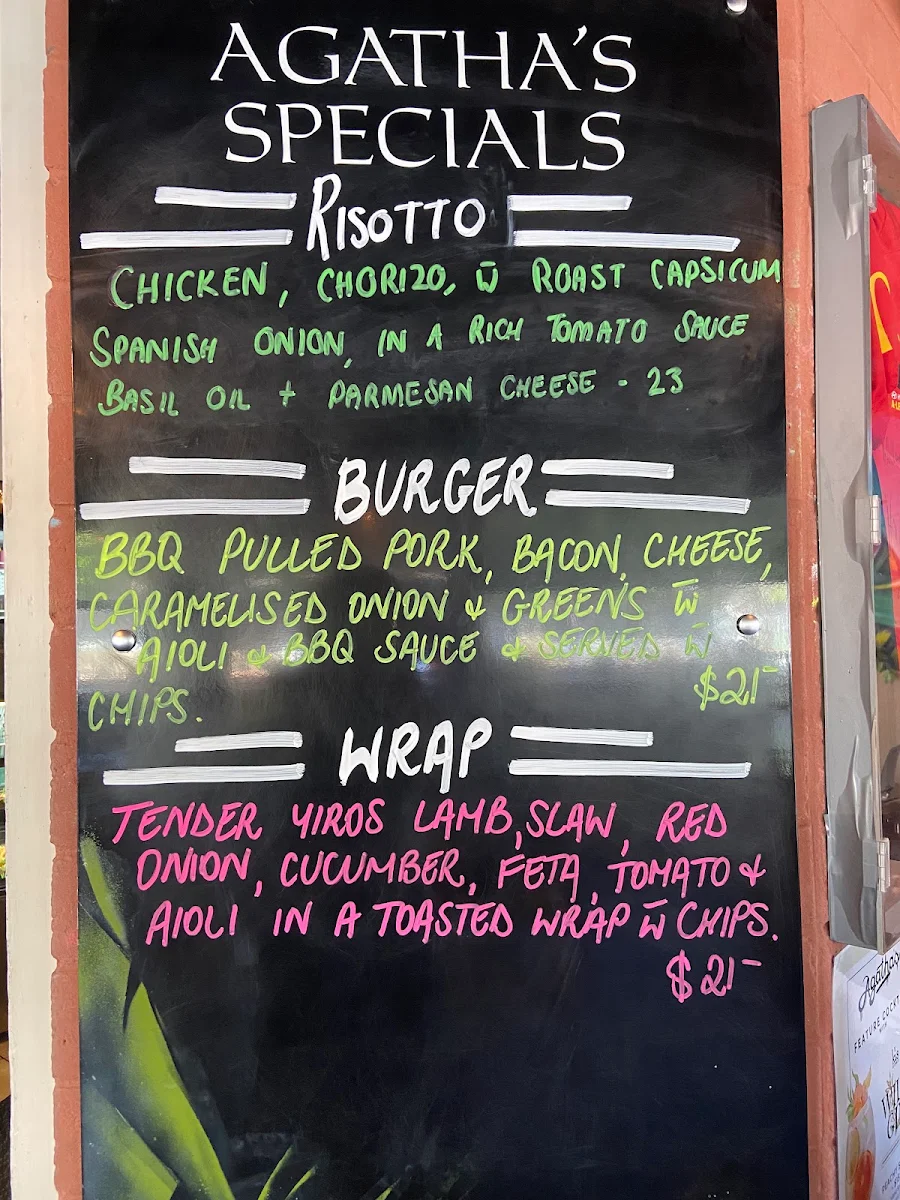 AGATHA'S
SPECIALS
RISOTTO
CHICKEN, CHORIZO, w̄ ROAST CAPSICUM
SPANISH ONION, IN A RICH TOMATO SAUCE
BASIL OIL + PARMESAN CHEESE - 23
BURGER
BBQ PULLED PORK, BACON, CHEESE,
CARAMELISED ONION & GREENS w̄
AIOLI & BBQ SAUCE & SERVED w̄
CHIPS. $21-
WRAP
TENDER YIROS LAMB, SLAW, RED
ONION, CUCUMBER, FETA, TOMATO &
AIOLI IN A TOASTED WRAP w̄ CHIPS.
$21-
FEATURE